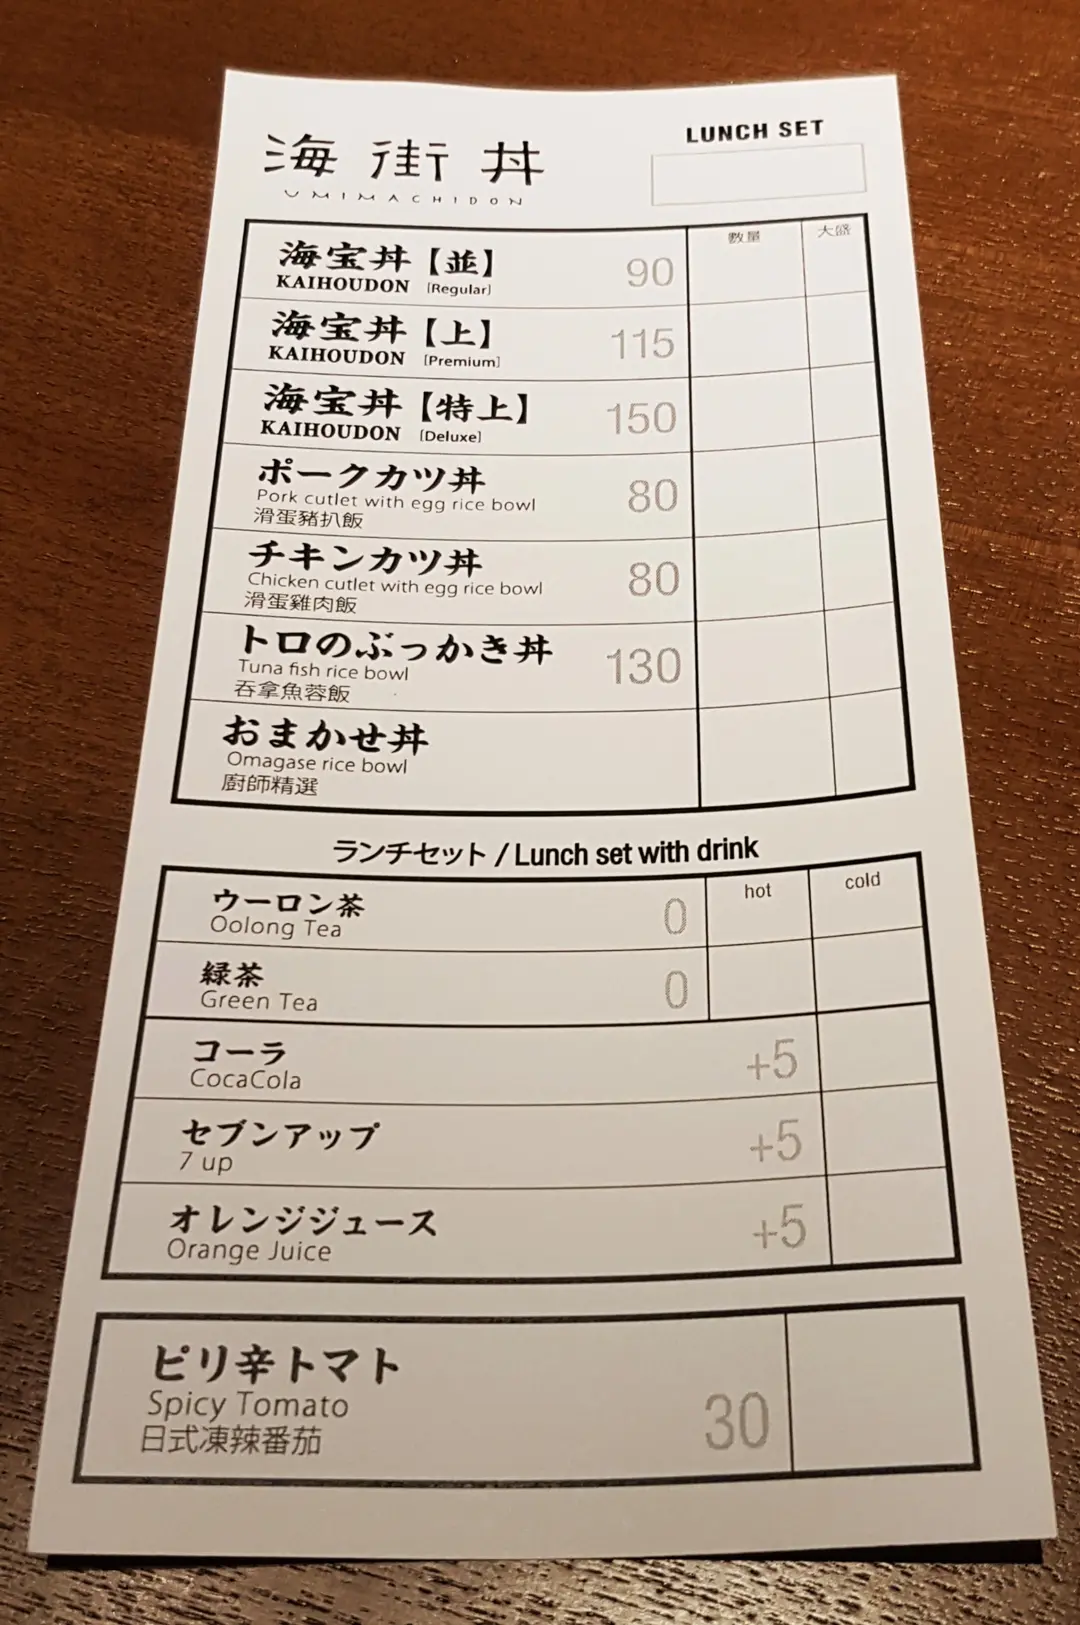 海街丼
UMIMACHIDON
LUNCH SET
數量 大盛
海宝丼【並】
KAIHOUDON [Regular]
90
海宝丼【上】
KAIHOUDON [Premium]
115
海宝丼【特上】
KAIHOUDON [Deluxe]
150
ポークカツ丼
Pork cutlet with egg rice bowl
滑蛋豬扒飯
80
チキンカツ丼
Chicken cutlet with egg rice bowl
滑蛋雞肉飯
80
トロのぶっかき丼
Tuna fish rice bowl
吞拿魚蓉飯
130
おまかせ丼
Omagase rice bowl
廚師精選
ランチセット / Lunch set with drink
hot cold
ウーロン茶
Oolong Tea
0
緑茶
Green Tea
0
コーラ
CocaCola
+5
セブンアップ
7 up
+5
オレンジジュース
Orange Juice
+5
ピリ辛トマト
Spicy Tomato
日式凍辣番茄
30